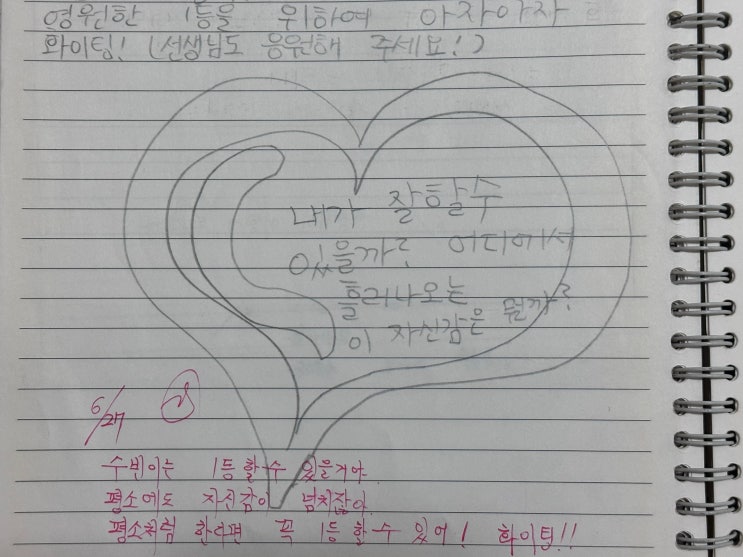 영원한 1등을 위하여 아자아자
화이팅! (선생님도 응원해 주세요!)
내가 잘할수
있을까? 어디에서
흘러나오는
이 자신감은 뭘까?
6/27
수빈이는 1등할수 있을거야.
평소에도 자신감이 넘치잖아.
평소처럼 한다면 꼭 1등 할 수 있어! 화이팅!!